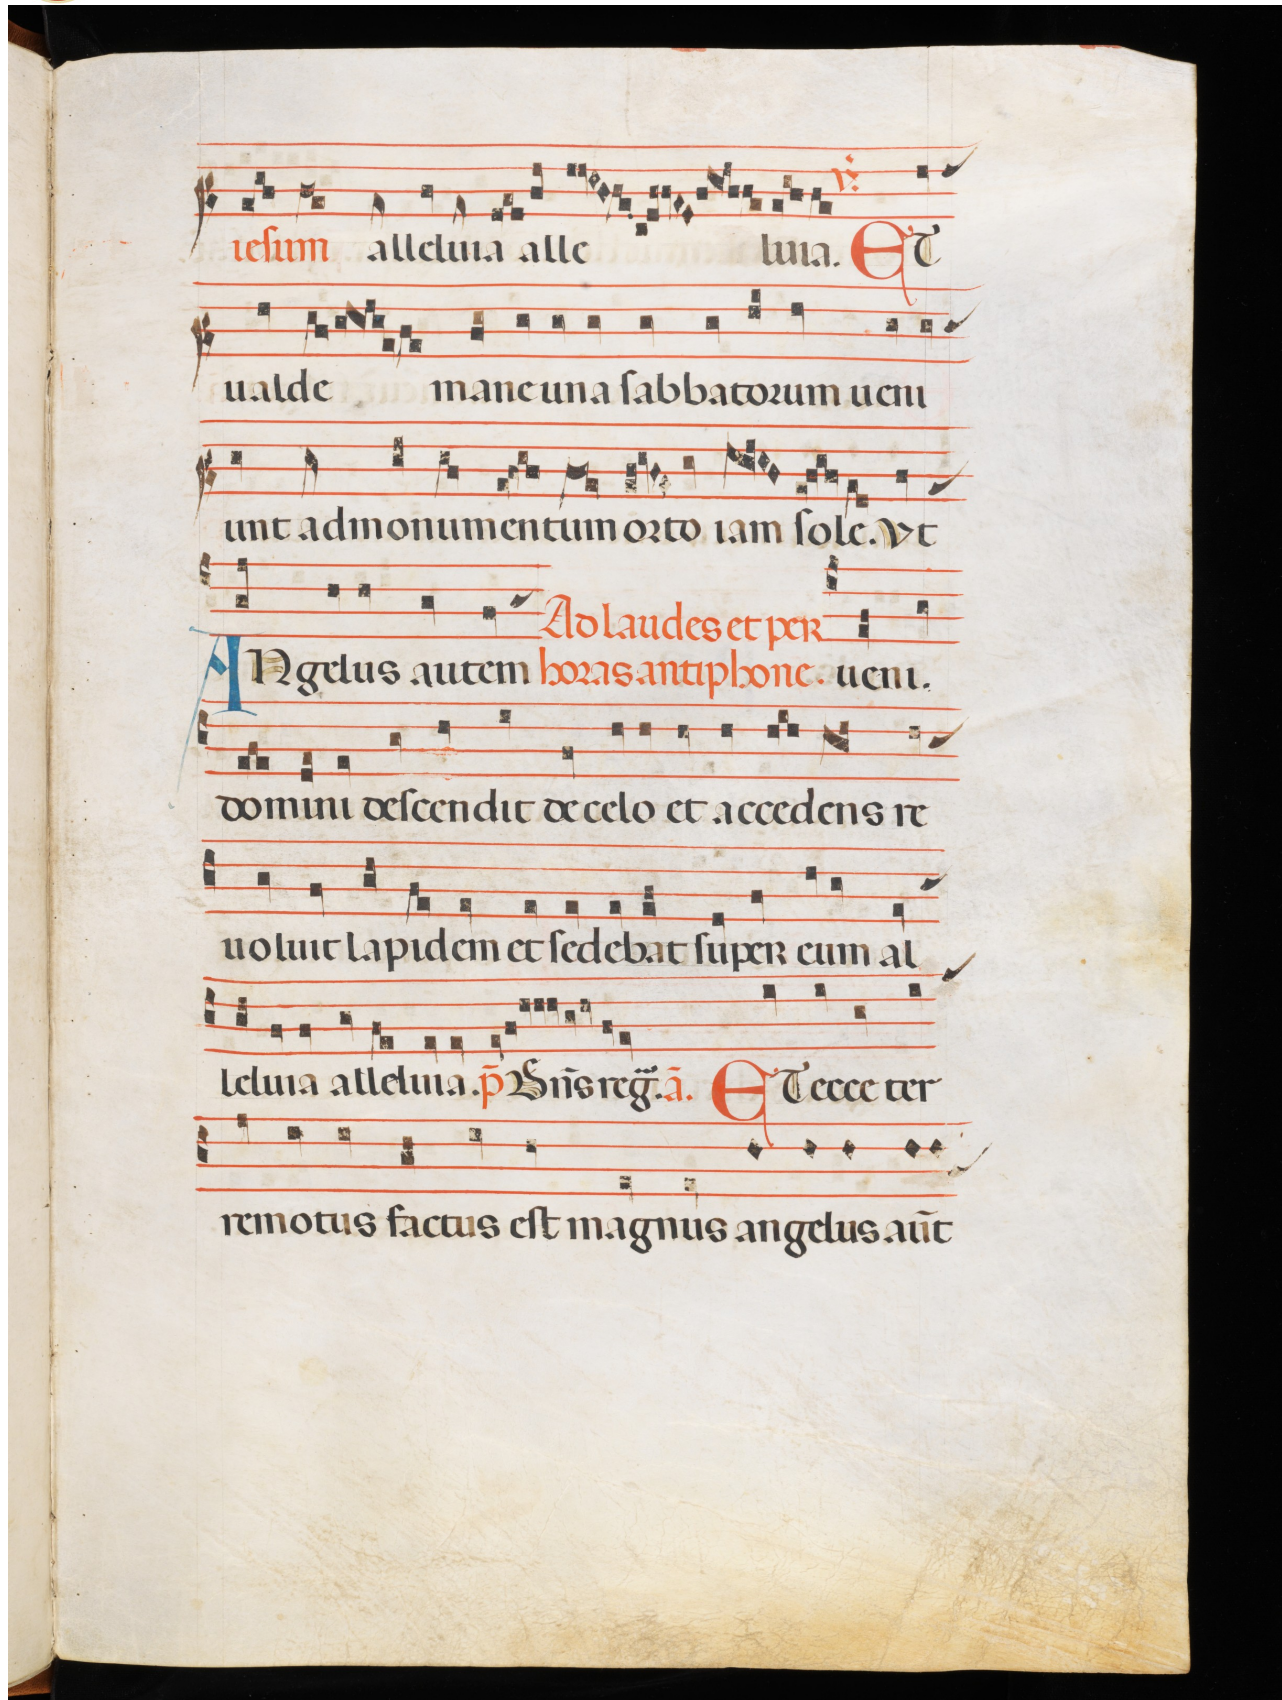 iesum alleluia alle luia. ET
℣.
ualde mane una sabbatorum ueni
unt ad monumentum orto iam sole. Vt
Ad laudes et per
ANgelus autem horas antiphone. ueni.
domini descendit de celo et accedens re
uoluit lapidem et sedebat super eum al
leluia alleluia. p̄ Dn̄s reg̃. ã. ET ecce ter
remotus factus est magnus angelus aūt